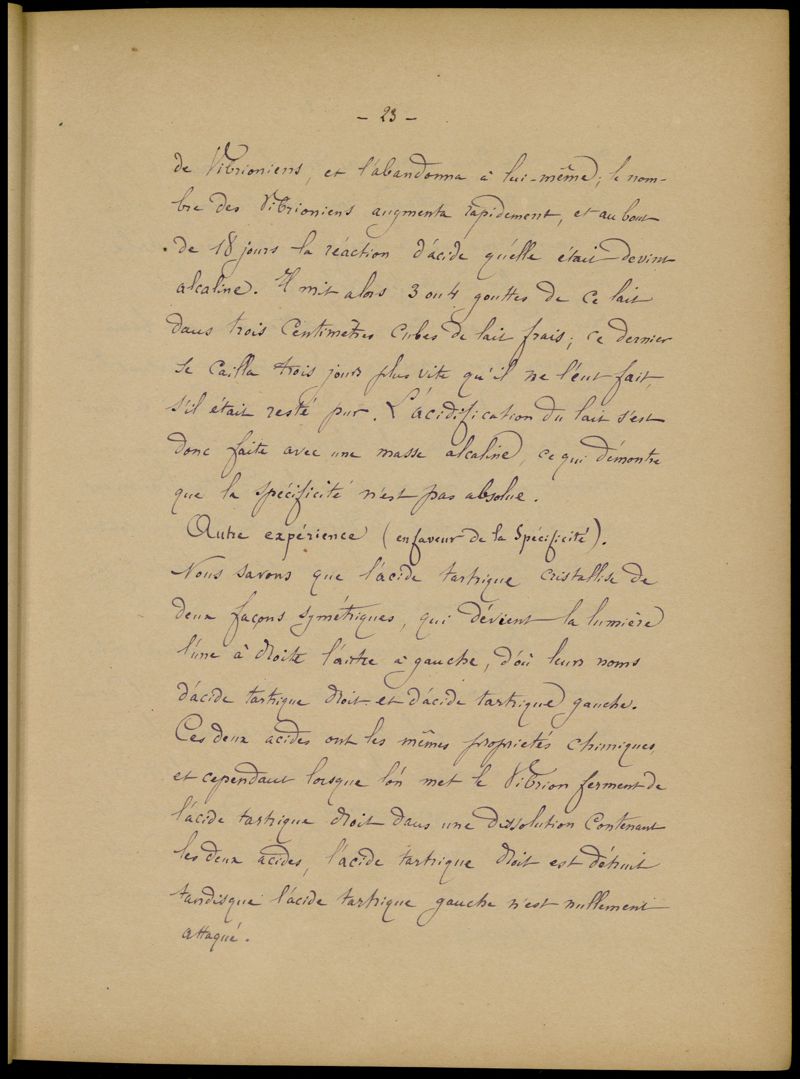 - 23 -
de Vibrioniens, et l'abandonna à lui-même; le nom-
bre des Vibrioniens augmenta rapidement, et au bout
de 18 jours la réaction d'acide qu'elle était devint
alcaline. Il mit alors 3 ou 4 gouttes de ce lait
dans trois Centimètres Cubes de lait frais; ce dernier
se cailla trois jours plus vite qu'il ne l'eut fait,
s'il était resté pur. L'acidification du lait s'est
donc faite avec une masse alcaline, ce qui démontre
que la spécificité n'est pas absolue.
Autre expérience (en faveur de la Spécificité).
Nous savons que l'acide tartrique cristallise de
deux façons symétriques, qui dévient la lumière
l'une à droite l'autre à gauche, d'où leurs noms
d'acide tartrique droit et d'acide tartrique gauche.
Ces deux acides ont les mêmes propriétés chimiques,
et cependant lorsque l'on met le Vibrion ferment de
l'acide tartrique droit dans une dissolution contenant
les deux acides, l'acide tartrique droit est détruit
tandisque l'acide tartrique gauche n'est nullement
attaqué.